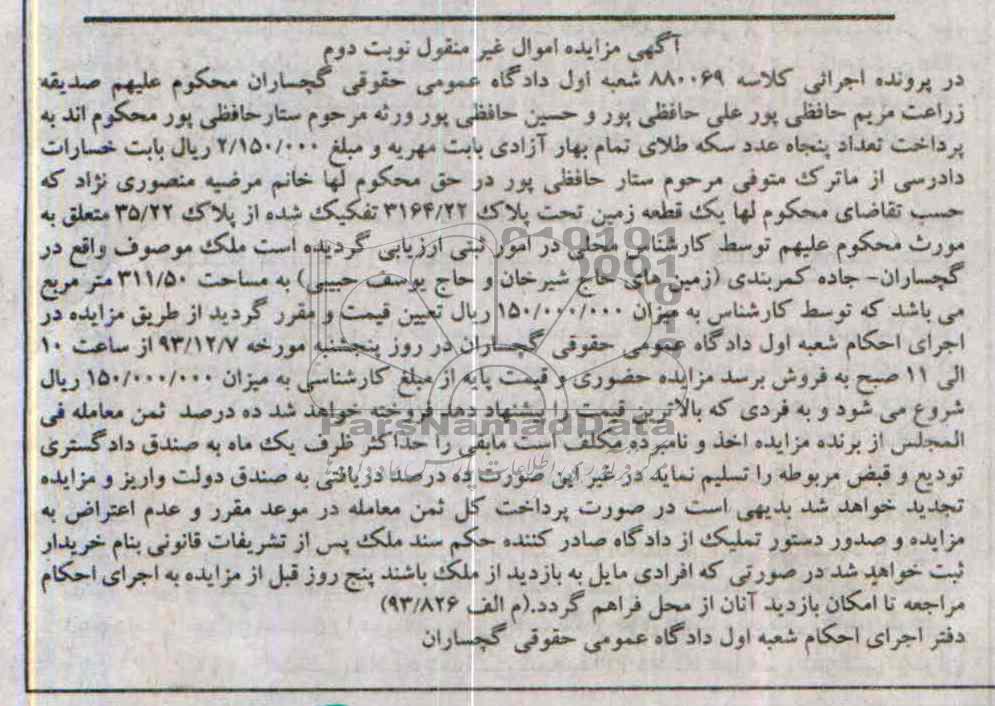 آگهی مزایده اموال غیر منقول نوبت دوم
در پرونده اجرائی کلاسه ۸۸۰۰۶۹ شعبه اول دادگاه عمومی حقوقی گچساران محکوم علیهم صدیقه
زراعت مریم حافظی پور علی حافظی پور و حسین حافظی پور ورثه مرحوم ستارحافظی پور محکوم اند به
پرداخت تعداد پنجاه عدد سکه طلای تمام بهار آزادی بابت مهریه و مبلغ ۲/۱۵۰/۰۰۰ ریال بابت خسارات
دادرسی از ماترک متوفی مرحوم ستار حافظی پور در حق محکوم لها خانم مرضیه منصوری نژاد که
حسب تقاضای محکوم لها یک قطعه زمین تحت پلاک ۳۱۶۴/۲۲ تفکیک شده از پلاک ۳۵/۲۲ متعلق به
مورث محکوم علیهم توسط کارشناس محلی در امور ثبتی ارزیابی گردیده است ملک موصوف واقع در
گچساران- جاده کمربندی (زمین های حاج شیرخان و حاج یوسف حبیبی) به مساحت ۳۱۱/۵۰ متر مربع
می باشد که توسط کارشناس به میزان ۱۵۰/۰۰۰/۰۰۰ ریال تعیین قیمت و مقرر گردید از طریق مزایده در
اجرای احکام شعبه اول دادگاه عمومی حقوقی گچساران در روز پنجشنبه مورخه ۹۳/۱۲/۷ از ساعت ۱۰
الی ۱۱ صبح به فروش برسد مزایده حضوری و قیمت پایه از مبلغ کارشناسی به میزان ۱۵۰/۰۰۰/۰۰۰ ریال
شروع می شود و به فردی که بالاترین قیمت را پیشنهاد دهد فروخته خواهد شد ده درصد ثمن معامله فی
المجلس از برنده مزایده اخذ و نامبرده مکلف است مابقی را حداکثر ظرف یک ماه به صندق دادگستری
تودیع و قبض مربوطه را تسلیم نماید در غیر این صورت ده درصد دریافتی به صندق دولت واریز و مزایده
تجدید خواهد شد بدیهی است در صورت پرداخت کل ثمن معامله در موعد مقرر و عدم اعتراض به
مزایده و صدور دستور تملیک از دادگاه صادر کننده حکم سند ملک پس از تشریفات قانونی بنام خریدار
ثبت خواهد شد در صورتی که افرادی مایل به بازدید از ملک باشند پنج روز قبل از مزایده به اجرای احکام
مراجعه تا امکان بازدید آنان از محل فراهم گردد.(م الف ۹۳/۸۲۶)
دفتر اجرای احکام شعبه اول دادگاه عمومی حقوقی گچساران
ParsNamadData